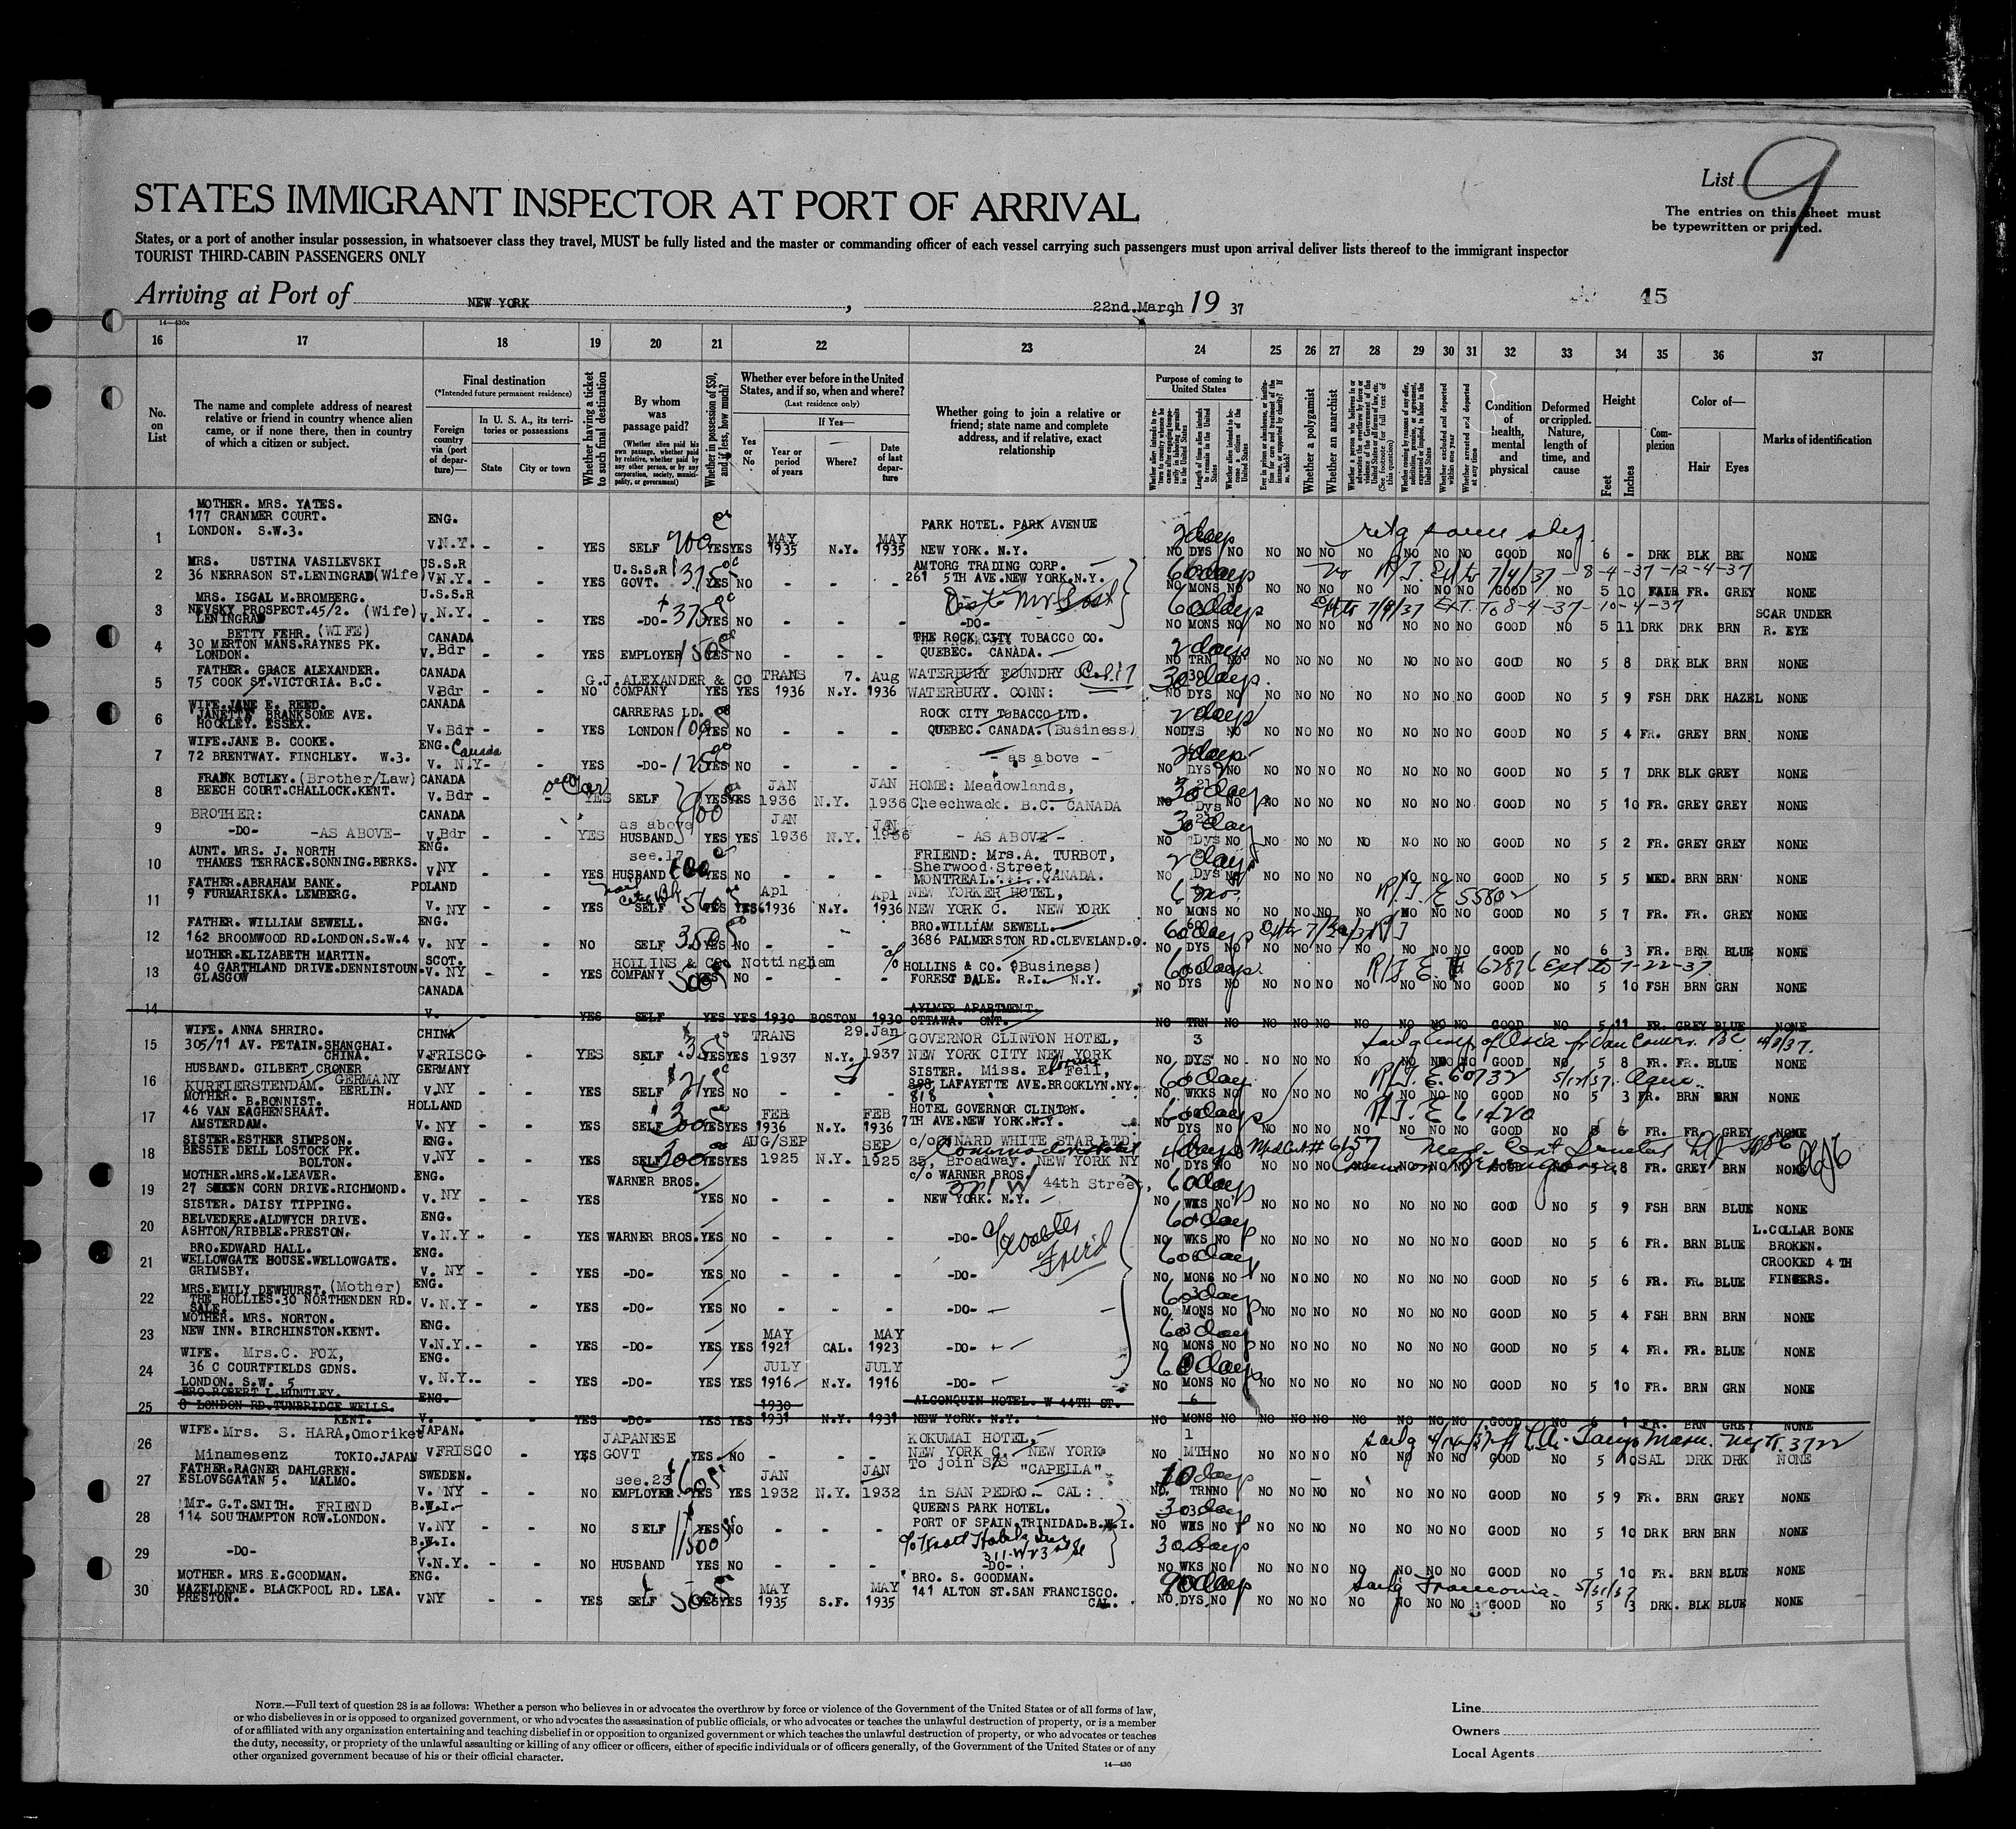 List 9
STATES IMMIGRANT INSPECTOR AT PORT OF ARRIVAL
The entries on this sheet must
be typewritten or printed.
States, or a port of another insular possession, in whatsoever class they travel, MUST be fully listed and the master or commanding officer of each vessel carrying such passengers must upon arrival deliver lists thereof to the immigrant inspector
TOURIST THIRD-CABIN PASSENGERS ONLY
Arriving at Port of NEW YORK, 22nd.March, 19 37
15
14—430c
16 17 18 19 20 21 22 23 24 25 26 27 28 29 30 31 32 33 34 35 36 37
No. on List
The name and complete address of nearest relative or friend in country whence alien came, or if none there, then in country of which a citizen or subject.
Final destination
(*Intended future permanent residence)
Foreign country via (port of departure)—
In U. S. A., its territories or possessions
State
City or town
Whether having a ticket to such final destination
By whom was passage paid?
(Whether alien paid his own passage, whether paid by relative, whether paid by any other person, or by any corporation, society, municipality, or government)
Whether in possession of $50, and if less, how much?
Whether ever before in the United States, and if so, when and where?
(Last residence only)
Yes or No
If Yes—
Year or period of years
Where?
Date of last departure
Whether going to join a relative or friend; state name and complete address, and if relative, exact relationship
Purpose of coming to United States
Length of time alien intends to remain in the United States
Whether alien intends to become a citizen of the United States
Whether a polygamist
Whether an anarchist
(See footnote for full text of this question)
Whether excluded and deported within one year
Whether arrested and deported at any time
Condition of health, mental and physical
Deformed or crippled. Nature, length of time, and cause
Height
Feet
Inches
Complexion
Color of—
Hair
Eyes
Marks of identification
MOTHER. MRS. YATES.
177 CRANMER COURT. ENG. PARK HOTEL. PARK AVENUE
LONDON. S.W.3. MAY MAY 2 days
1 V.N.Y. - - YES SELF 700 YES YES 1935 N.Y. 1935 NEW YORK. N.Y. NO DYS NO NO NO NO NO NO NO NO GOOD NO 6 - DRK BLK BRN NONE
MRS. USTINA VASILEVSKI US.S.R U.S.S.R AMTORG TRADING CORP. 60 days
2 36 NERRASON ST.LENINGRAD (Wife) V.N.Y. - - YES GOVT. 375 YES NO - - - 261 5TH AVE.NEW YORK.N.Y. NO MONS NO NO NO NO NO NO NO NO GOOD NO 5 10 FAIR FR. GREY NONE
7/4/37 - 8-4-37 - 12-4-37
MRS. ISGAL M.BROMBERG. U.S.S.R 60 days
3 NEVSKY PROSPECT.45/2. (Wife) V.N.Y. - - YES -DO- 375 YES NO - - - -DO- NO MONS NO NO NO NO NO NO NO NO GOOD NO 5 11 DRK DRK BRN SCAR UNDER
LENINGRAD R. EYE
Ext. To 8-4-37 - 10-4-37
BETTY FEHR. (WIFE) CANADA THE ROCK CITY TOBACCO CO. 2 days
4 30 MERTON MANS.RAYNES PK. V.Bdr - - YES EMPLOYER 150 YES NO - - - QUEBEC. CANADA. NO TRN NO NO NO NO NO NO NO NO GOOD NO 5 8 DRK BLK BRN NONE
LONDON.
FATHER. GRACE ALEXANDER. CANADA G.J.ALEXANDER & CO TRANS 7. Aug WATERBURY FOUNDRY 30 days
5 75 COOK ST.VICTORIA. B.C. V.Bdr - - NO COMPANY YES YES 1936 N.Y. 1936 WATERBURY. CONN: NO DYS NO NO NO NO NO NO NO NO GOOD NO 5 9 FSH DRK HAZEL NONE
WIFE.JANE E. REED. CANADA CARRERAS LD. ROCK CITY TOBACCO LTD. 2 days
6 JANETTE BRANKSOME AVE. V.Bdr - - YES LONDON 100 YES NO - - - QUEBEC. CANADA. (Business) NO DYS NO NO NO NO NO NO NO NO GOOD NO 5 4 FR. GREY BRN NONE
HOCKLEY. ESSEX.
WIFE.JANE B. COOKE. ENG. Canada 2 days
7 72 BRENTWAY. FINCHLEY. W.3. V. N.Y- - YES -DO- 125 YES NO - - - - as above - NO DYS NO NO NO NO NO NO NO NO GOOD NO 5 7 DRK BLK GREY NONE
FRANK BOTLEY. (Brother/Law) CANADA JAN JAN HOME: Meadowlands, 30 days
8 BEECH COURT.CHALLOCK.KENT. V.Bdr - - YES SELF YES YES 1936 N.Y. 1936 Cheechwack. B.C. CANADA NO Dys NO NO NO NO NO NO NO NO GOOD NO 5 10 FR. GREY GREY NONE
BROTHER: CANADA as above JAN JAN 30 day
9 -DO- -AS ABOVE- V.Bdr - - YES HUSBAND YES YES 1936 N.Y. 1936 - AS ABOVE - NO Dys NO NO NO NO NO NO NO NO GOOD NO 5 2 FR. GREY GREY NONE
AUNT. MRS. J. NORTH ENG. see.17 FRIEND: Mrs.A. TURBOT, 2 days
10 THAMES TERRACE.SONNING.BERKS. V.NY - - YES HUSBAND 100 YES NO - - - Sherwood Street, NO Dys NO NO NO NO NO NO NO NO GOOD NO 5 5 MED. BRN BRN NONE
MONTREAL. CANADA.
FATHER.ABRAHAM BANK. POLAND Apl Apl NEW YORKER HOTEL, 6 mos. R/J. E 55802
11 9 FURMARISKA. LEMBERG. V. NY - - YES SELF 560 YES YES 1936 N.Y. 1936 NEW YORK C. NEW YORK NO MONS NO NO NO NO NO NO NO NO GOOD NO 5 7 FR. FR. GREY NONE
FATHER. WILLIAM SEWELL. ENG. BRO.WILLIAM SEWELL. 60 days
12 162 BROOMWOOD RD.LONDON.S.W.4 V. NY - - NO SELF 350 YES NO - - - 3686 PALMERSTON RD.CLEVELAND.O. NO DYS NO NO NO NO NO NO NO NO GOOD NO 6 3 FR. BRN BLUE NONE
MOTHER.ELIZABETH MARTIN. SCOT. HOLLINS & CO. Nottingham c/o HOLLINS & CO. (Business) 60 days R/J E. 62876 Ext to 7-22-37
13 40 GARTHLAND DRIVE.DENNISTOUN V. NY YES COMPANY 500 YES NO - - - FOREST DALE. R.I. N.Y. NO DYS NO NO NO NO NO NO NO NO GOOD NO 5 10 FSH BRN GRN NONE
GLASGOW
CANADA AYLMER APARTMENT.
14 V. YES SELF YES YES 1930 BOSTON 1930 OTTAWA. ONT. NO TRN NO NO NO NO NO NO NO NO GOOD NO 5 11 FR. GREY BLUE NONE
WIFE. ANNA SHRIRO. CHINA TRANS 29.Jan GOVERNOR CLINTON HOTEL, 3
15 305/71 AV. PETAIN.SHANGHAI. V.FRISCO - - YES SELF 35 YES YES 1937 N.Y. 1937 NEW YORK CITY NEW YORK NO DYS NO NO NO NO NO NO NO NO GOOD NO 5 8 FR. FR. BLUE NONE
CHINA.
HUSBAND. GILBERT CRONER GERMANY SISTER. Miss. E. Feil, 60 day R/J. E. 60732
16 KURFIERSTENDAM. GERMANY V.NY - - YES SELF YES NO - - - 818 LAFAYETTE AVE.BROOKLYN.NY. NO WKS NO NO NO NO NO NO NO NO GOOD NO 5 3 FR. BRN BRN NONE
BERLIN.
MOTHER. B.BONNIST. HOLLAND FEB FEB HOTEL GOVERNOR CLINTON. 60 days R/J. E 61420
17 46 VAN EAGHENSHAAT. V. NY - - YES SELF 300 YES YES 1936 N.Y. 1936 7TH AVE.NEW YORK.N.Y. NO DYS NO NO NO NO NO NO NO NO GOOD NO 6 FR. FR. GREY NONE
AMSTERDAM.
SISTER.ESTHER SIMPSON. ENG. AUG/SEP SEP c/o CUNARD WHITE STAR LTD. Med Cert # 6157
18 BESSIE DELL LOSTOCK PK. V.NY - - YES SELF 300 YES YES 1925 N.Y. 1925 25, Broadway. NEW YORK NY NO DYS NO NO NO NO NO NO NO NO GOOD 5 8 FR. GREY BRN NONE
BOLTON.
MOTHER.MRS.M.LEAVER. ENG. WARNER BROS. c/o WARNER BROS. 321 W 44th Street, 60 days
19 27 SHEEN CORN DRIVE.RICHMOND. V. NY - - YES YES NO - - - NEW YORK. N.Y. NO WKS NO NO NO NO NO NO NO NO GOOD NO 5 9 FSH BRN BLUE NONE
SISTER. DAISY TIPPING. 60 day
20 BELVEDERE.ALDWYCH DRIVE. ENG. V.N.Y - - YES WARNER BROS. YES NO - - - -DO- NO WKS NO NO NO NO NO NO NO NO GOOD NO 5 6 FR. BRN BLUE L.COLLAR BONE
ASHTON/RIBBLE.PRESTON. BROKEN.
BRO.EDWARD HALL. ENG. 60 day
21 WELLOWGATE HOUSE.WELLOWGATE. V. NY - - YES -DO- YES NO - - - -DO- NO MONS NO NO NO NO NO NO NO NO GOOD NO 5 6 FR. FR. BLUE CROOKED 4 TH
GRIMSBY. FINGERS.
MRS.EMILY DEWHURST. (Mother) ENG. 60 day
22 THE HOLLIES.30 NORTHENDEN RD. V.N.Y - - YES -DO- YES NO - - - -DO- NO MONS NO NO NO NO NO NO NO NO GOOD NO 5 4 FSH BRN BRN NONE
SALE.
MOTHER. MRS. NORTON. ENG. MAY MAY 60 day
23 NEW INN. BIRCHINSTON.KENT. V.N.Y. - - YES -DO- YES YES 1921 CAL. 1923 -DO- NO MONS NO NO NO NO NO NO NO NO GOOD NO 5 4 FR. FR. BLUE NONE
WIFE. Mrs.C. FOX, ENG. JULY JULY 60 days
24 36 C COURTFIELDS GDNS. V. N.Y. - - YES -DO- YES YES 1916 N.Y. 1916 -DO- NO MONS NO NO NO NO NO NO NO NO GOOD NO 5 10 FR. BRN GRN NONE
LONDON. S.W. 5
BRO.ROBERT L.HUNTLEY. ENG. 1930 ALGONQUIN HOTEL. W 44TH ST. 6
25 8 LONDON RD.TUNBRIDGE WELLS. V. YES -DO- YES YES 1931 N.Y. 1931 NEW YORK. N.Y. NO MONS NO NO NO NO NO NO NO NO GOOD NO 6 1 FR. BRN GREY NONE
KENT.
WIFE. Mrs. S. HARA,Omoriket JAPAN. JAPANESE KOKUMAI HOTEL, 1
26 Minamesenz TOKIO.JAPAN V.FRISCO - YES GOVT YES NO - - - NEW YORK C. NEW YORK NO MTH NO NO NO NO NO NO NO NO GOOD NO 5 10 SAL DRK DRK NONE
FATHER.RAGNER DAHLGREN. SWEDEN. see.23 JAN JAN To join S/S "CAPELLA"
27 ESLOVSGATAN 5. MALMO. V. NY - - NO EMPLOYER YES YES 1932 N.Y. 1932 in SAN PEDRO - CAL: NO TRN NO NO NO NO NO NO NO NO GOOD NO 5 9 FR. BRN GREY NONE
Mr. G.T.SMITH. FRIEND B.W.I. QUEENS PARK HOTEL. 30 day
28 114 SOUTHAMPTON ROW.LONDON. V.NY - - NO SELF YES NO - - - PORT OF SPAIN.TRINIDAD.B.W.I. NO WKS NO NO NO NO NO NO NO NO GOOD NO 5 10 DRK BRN BRN NONE
B.W.I. 30 days
29 -DO- V.N.Y. - - NO HUSBAND YES NO - - - -DO- NO WKS NO NO NO NO NO NO NO NO GOOD NO 5 10 FR. BRN BLUE NONE
MOTHER. MRS.E.GOODMAN. ENG. MAY MAY BRO. S. GOODMAN. 90 days Franconia 5/31/37
30 MAZELDENE. BLACKPOOL RD. LEA. V.NY - - YES SELF 500 YES YES 1935 S.F. 1935 141 ALTON ST.SAN FRANCISCO. NO DYS NO NO NO NO NO NO NO NO GOOD NO 5 3 DRK. BLK BLUE NONE
PRESTON. CAL.
NOTE.—Full text of question 28 is as follows: Whether a person who believes in or advocates the overthrow by force or violence of the Government of the United States or of all forms of law,
or who disbelieves in or is opposed to organized government, or who advocates the assassination of public officials, or who advocates or teaches the unlawful destruction of property, or is a member
of or affiliated with any organization entertaining and teaching disbelief in or opposition to organized government or which teaches the unlawful destruction of property, or who advocates or teaches
the duty, necessity, or propriety of the unlawful assaulting or killing of any officer or officers, either of specific individuals or of officers generally, of the Government of the United States or of any
other organized government because of his or their official character.
14—430
Line
Owners
Local Agents